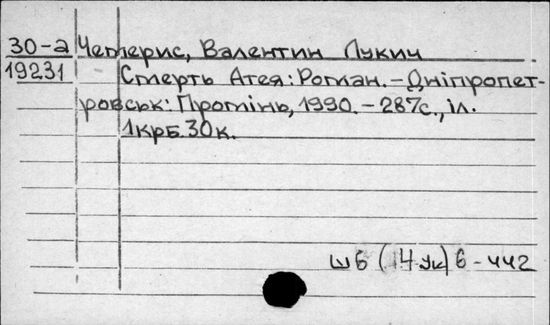 30-а Чемерис, Валентин Лукич
19231 Смерть Атея: Роман. – Дніпропет-
ровськ: Промінь, 1990. – 287с., іл.
1крб. 30к.
Ш6 (4 Ук) 6 - 442